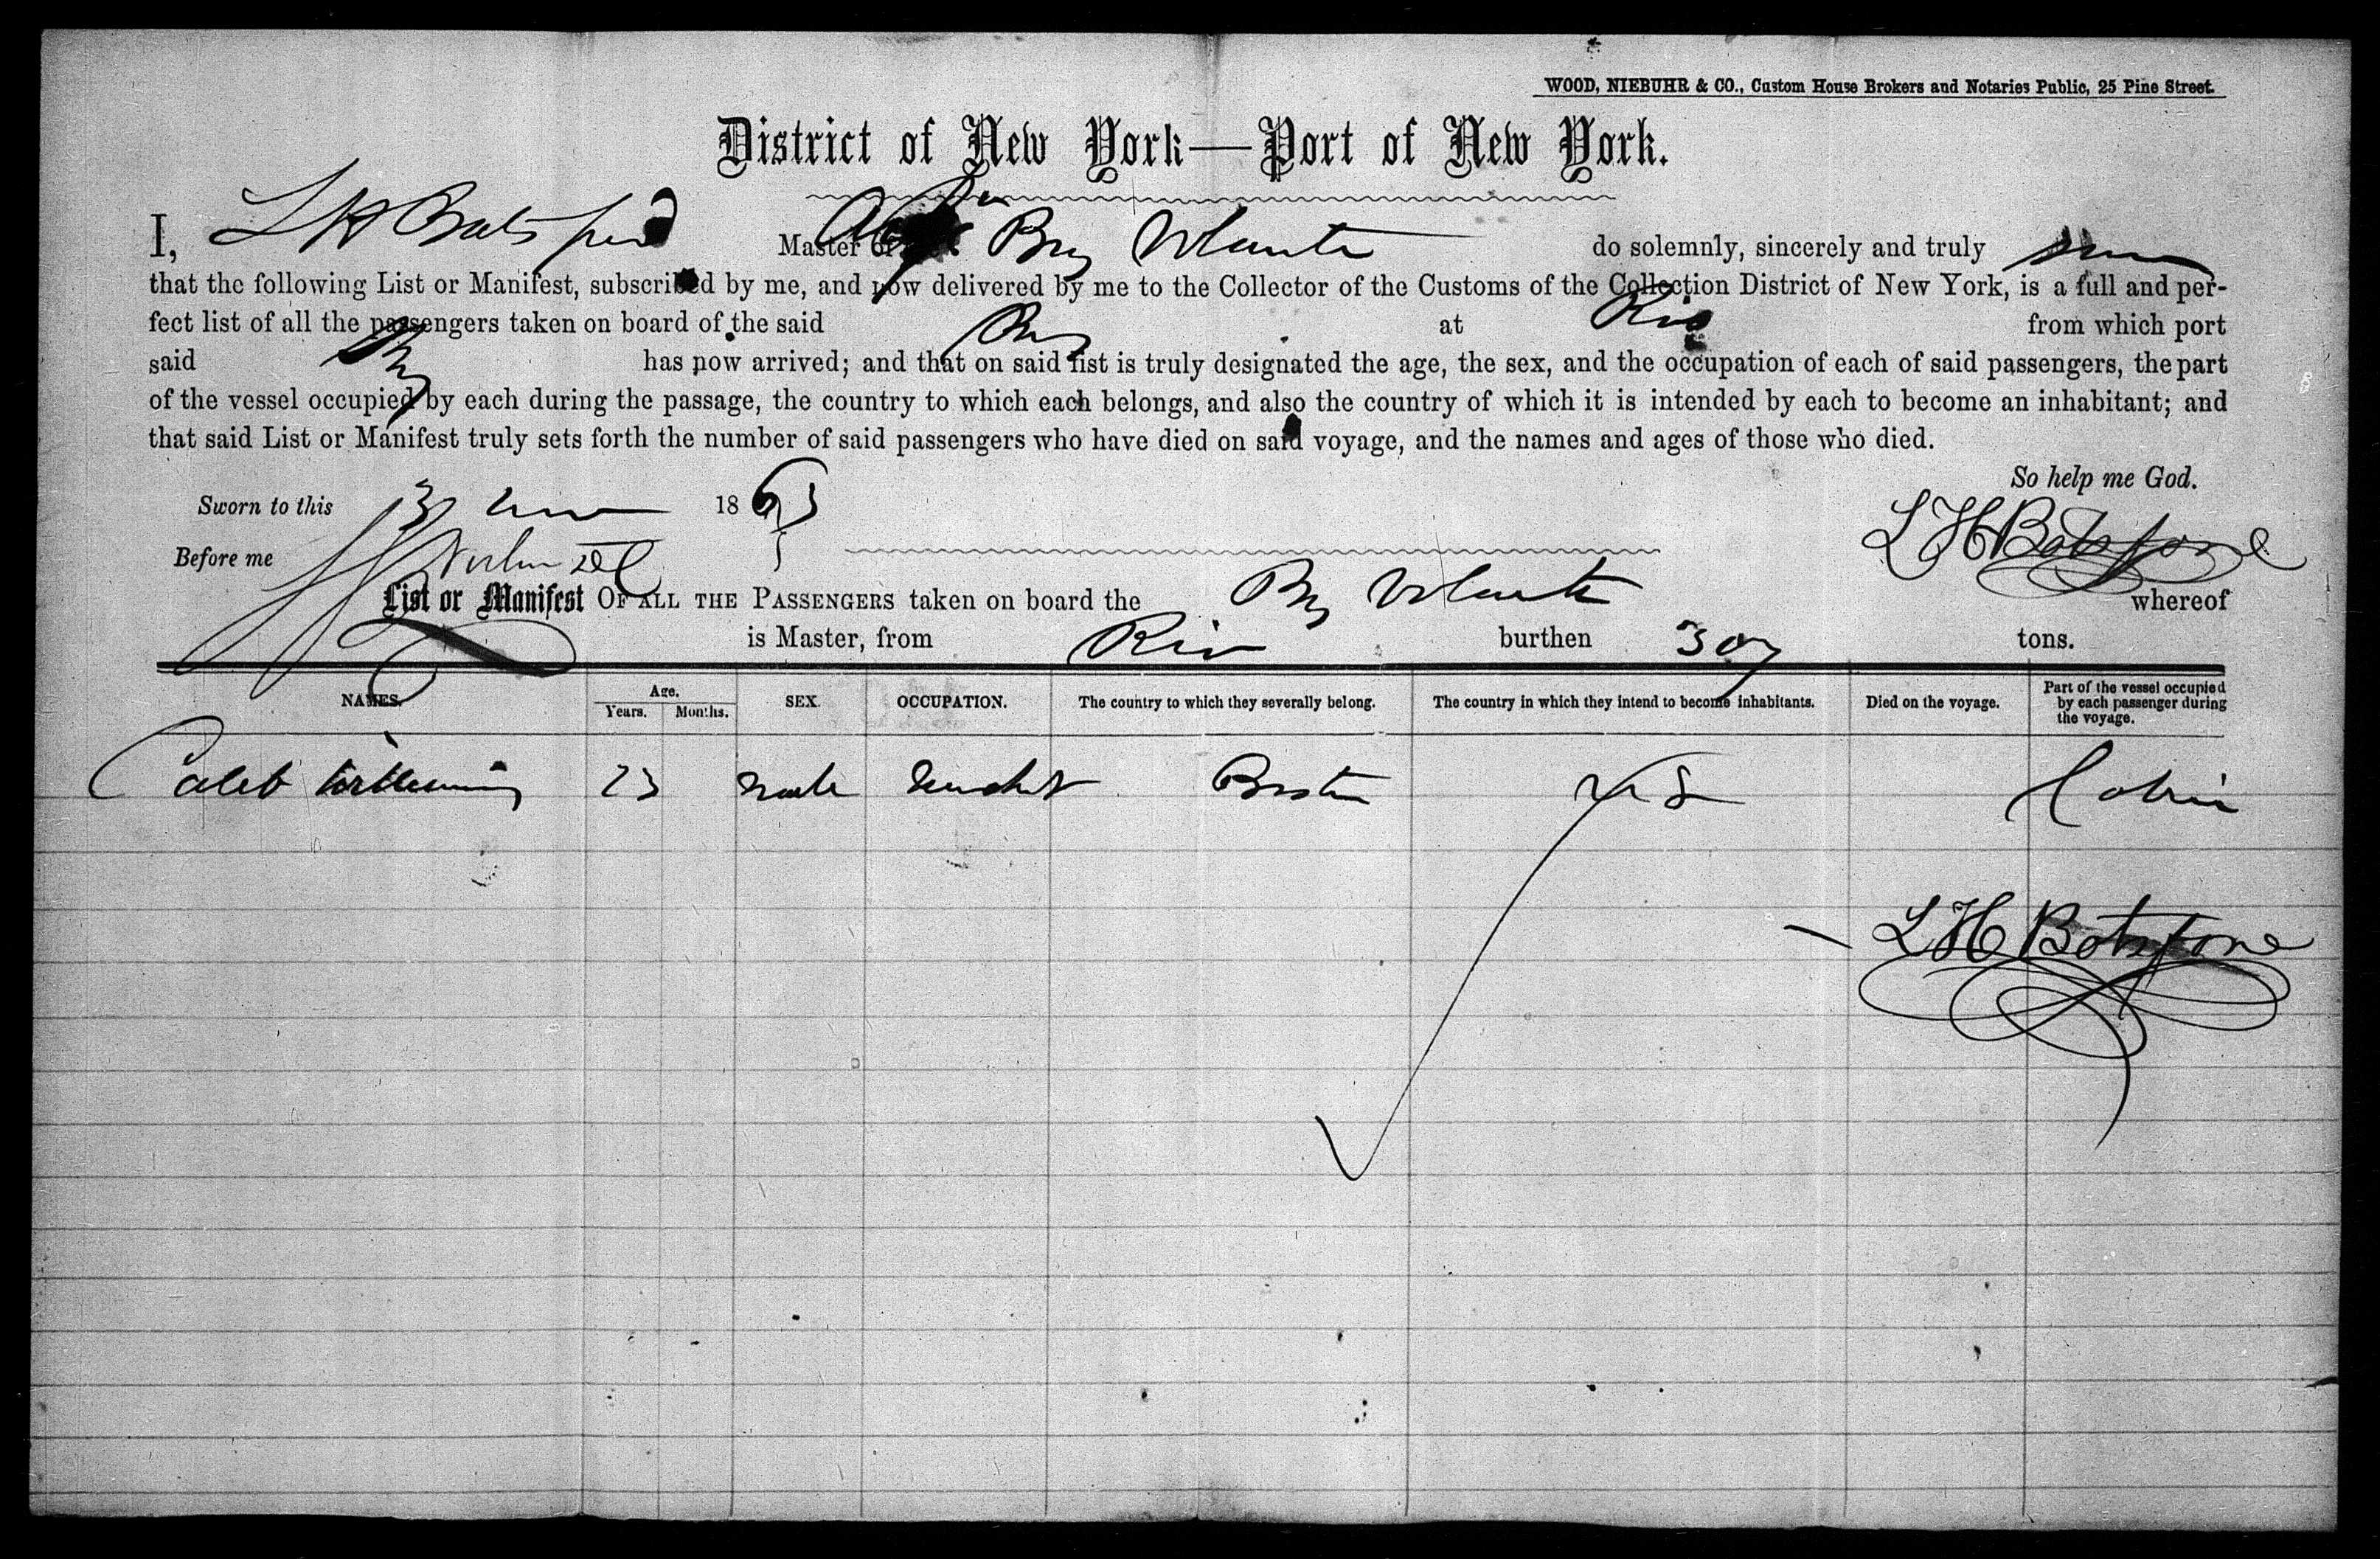 WOOD, NIEBUHR & CO., Custom House Brokers and Notaries Public, 25 Pine Street.
District of New York—Port of New York.
I, L H Botsford Master of Brig Volante do solemnly, sincerely and truly swear
that the following List or Manifest, subscribed by me, and now delivered by me to the Collector of the Customs of the Collection District of New York, is a full and per-
fect list of all the passengers taken on board of the said Brig at Rio from which port
said Brig has now arrived; and that on said list is truly designated the age, the sex, and the occupation of each of said passengers, the part
of the vessel occupied by each during the passage, the country to which each belongs, and also the country of which it is intended by each to become an inhabitant; and
that said List or Manifest truly sets forth the number of said passengers who have died on said voyage, and the names and ages of those who died.
So help me God.
Sworn to this 3 186
Before me L H Botsford
List or Manifest OF ALL THE PASSENGERS taken on board the Brig Volante whereof
is Master, from Rio burthen 307 tons.
NAMES. Age. Years. Months. SEX. OCCUPATION. The country to which they severally belong. The country in which they intend to become inhabitants. Died on the voyage. Part of the vessel occupied by each passenger during the voyage.
Caleb 23 male Boston US Cabin
L H Botsford